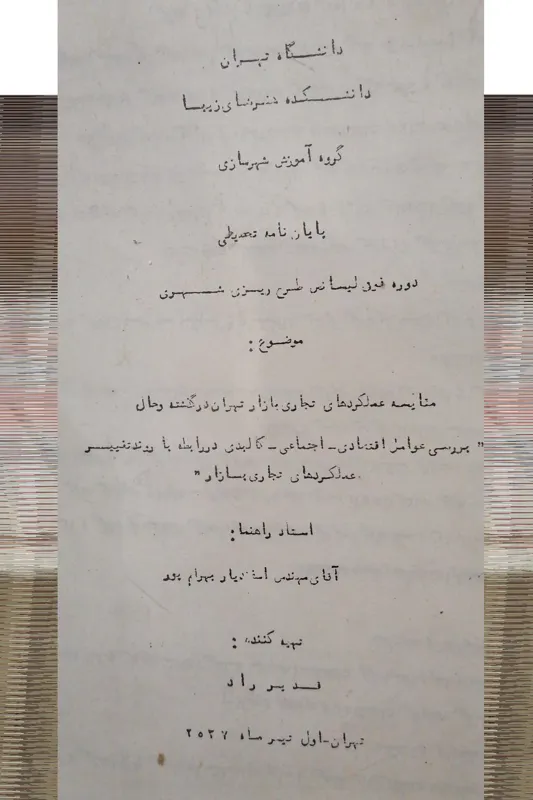 دانشگاه تهران
دانشکده هنرهای زیبا
گروه آموزش شهرسازی
پایان نامه تحصیلی
دوره فوق لیسانس طرح ریزی شهری
موضوع :
مقایسه عملکردهای تجاری بازار تهران در گذشته و حال
" بررسی عوامل اقتصادی - اجتماعی - کالبدی در رابطه با روند تغییر
عملکردهای تجاری بازار "
استاد راهنما :
آقای مهندس اسفندیار بهرام پور
تهیه کننده :
قدیر راد
تهران - اول تیر ماه ۲۵۳۷